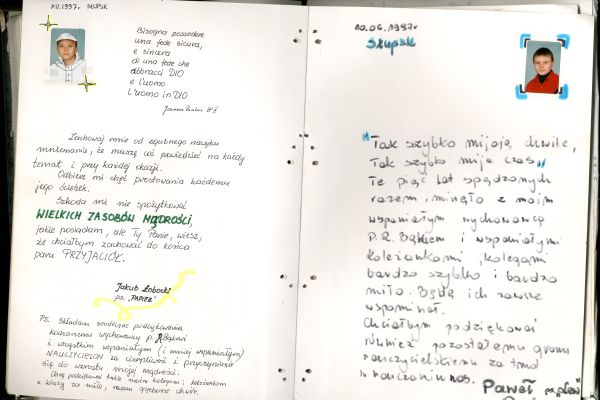 7.VI.1997r. SŁUPSK
Bisogna possedere
una fede sicura,
e sincera
di una fede che
abbracci DIO
e l'uomo
l'uomo in DIO.
Zachowaj mnie od zgubnego nawyku
mniemania, że muszę coś powiedzieć na każdy
temat i przy każdej okazji.
Odbierz mi chęć prostowania każdemu
jego ścieżek.
Szkoda mi nie spożytkować
WIELKICH ZASOBÓW MĄDROŚCI,
jakie posiadam, ale Ty Panie, wiesz,
że chciałbym zachować do końca
paru PRZYJACIÓŁ.
Jakub Łobocki
ps. "PAPIEŻ"
PS. Składam serdeczne podziękowania
kochanemu wychowawcy p. R.Bąkowi
i wszystkim wspaniałym (i mniej wspaniałym)
NAUCZYCIELOM za cierpliwość i przyczynienie
się do wzrostu mojej mądrości.
Chcę podziękować także moim kolegom i koleżankom
z klasy za miłe, razem spędzone chwile.
10.06.1997r
Słupsk
"Tak szybko mijają chwile,
Tak szybko mija czas"
Te pięć lat spędzonych
razem, minęło z moim
wspaniałym wychowawcą
P.R. Bąkiem i wspaniałymi
koleżankami, kolegami
bardzo szybko i bardzo
miło. Będę ich zawsze
wspominał.
Chciałbym podziękować
również pozostałemu gronu
nauczycielskiemu za trud
w nauczaniu nas.
Paweł ps. "Lew"